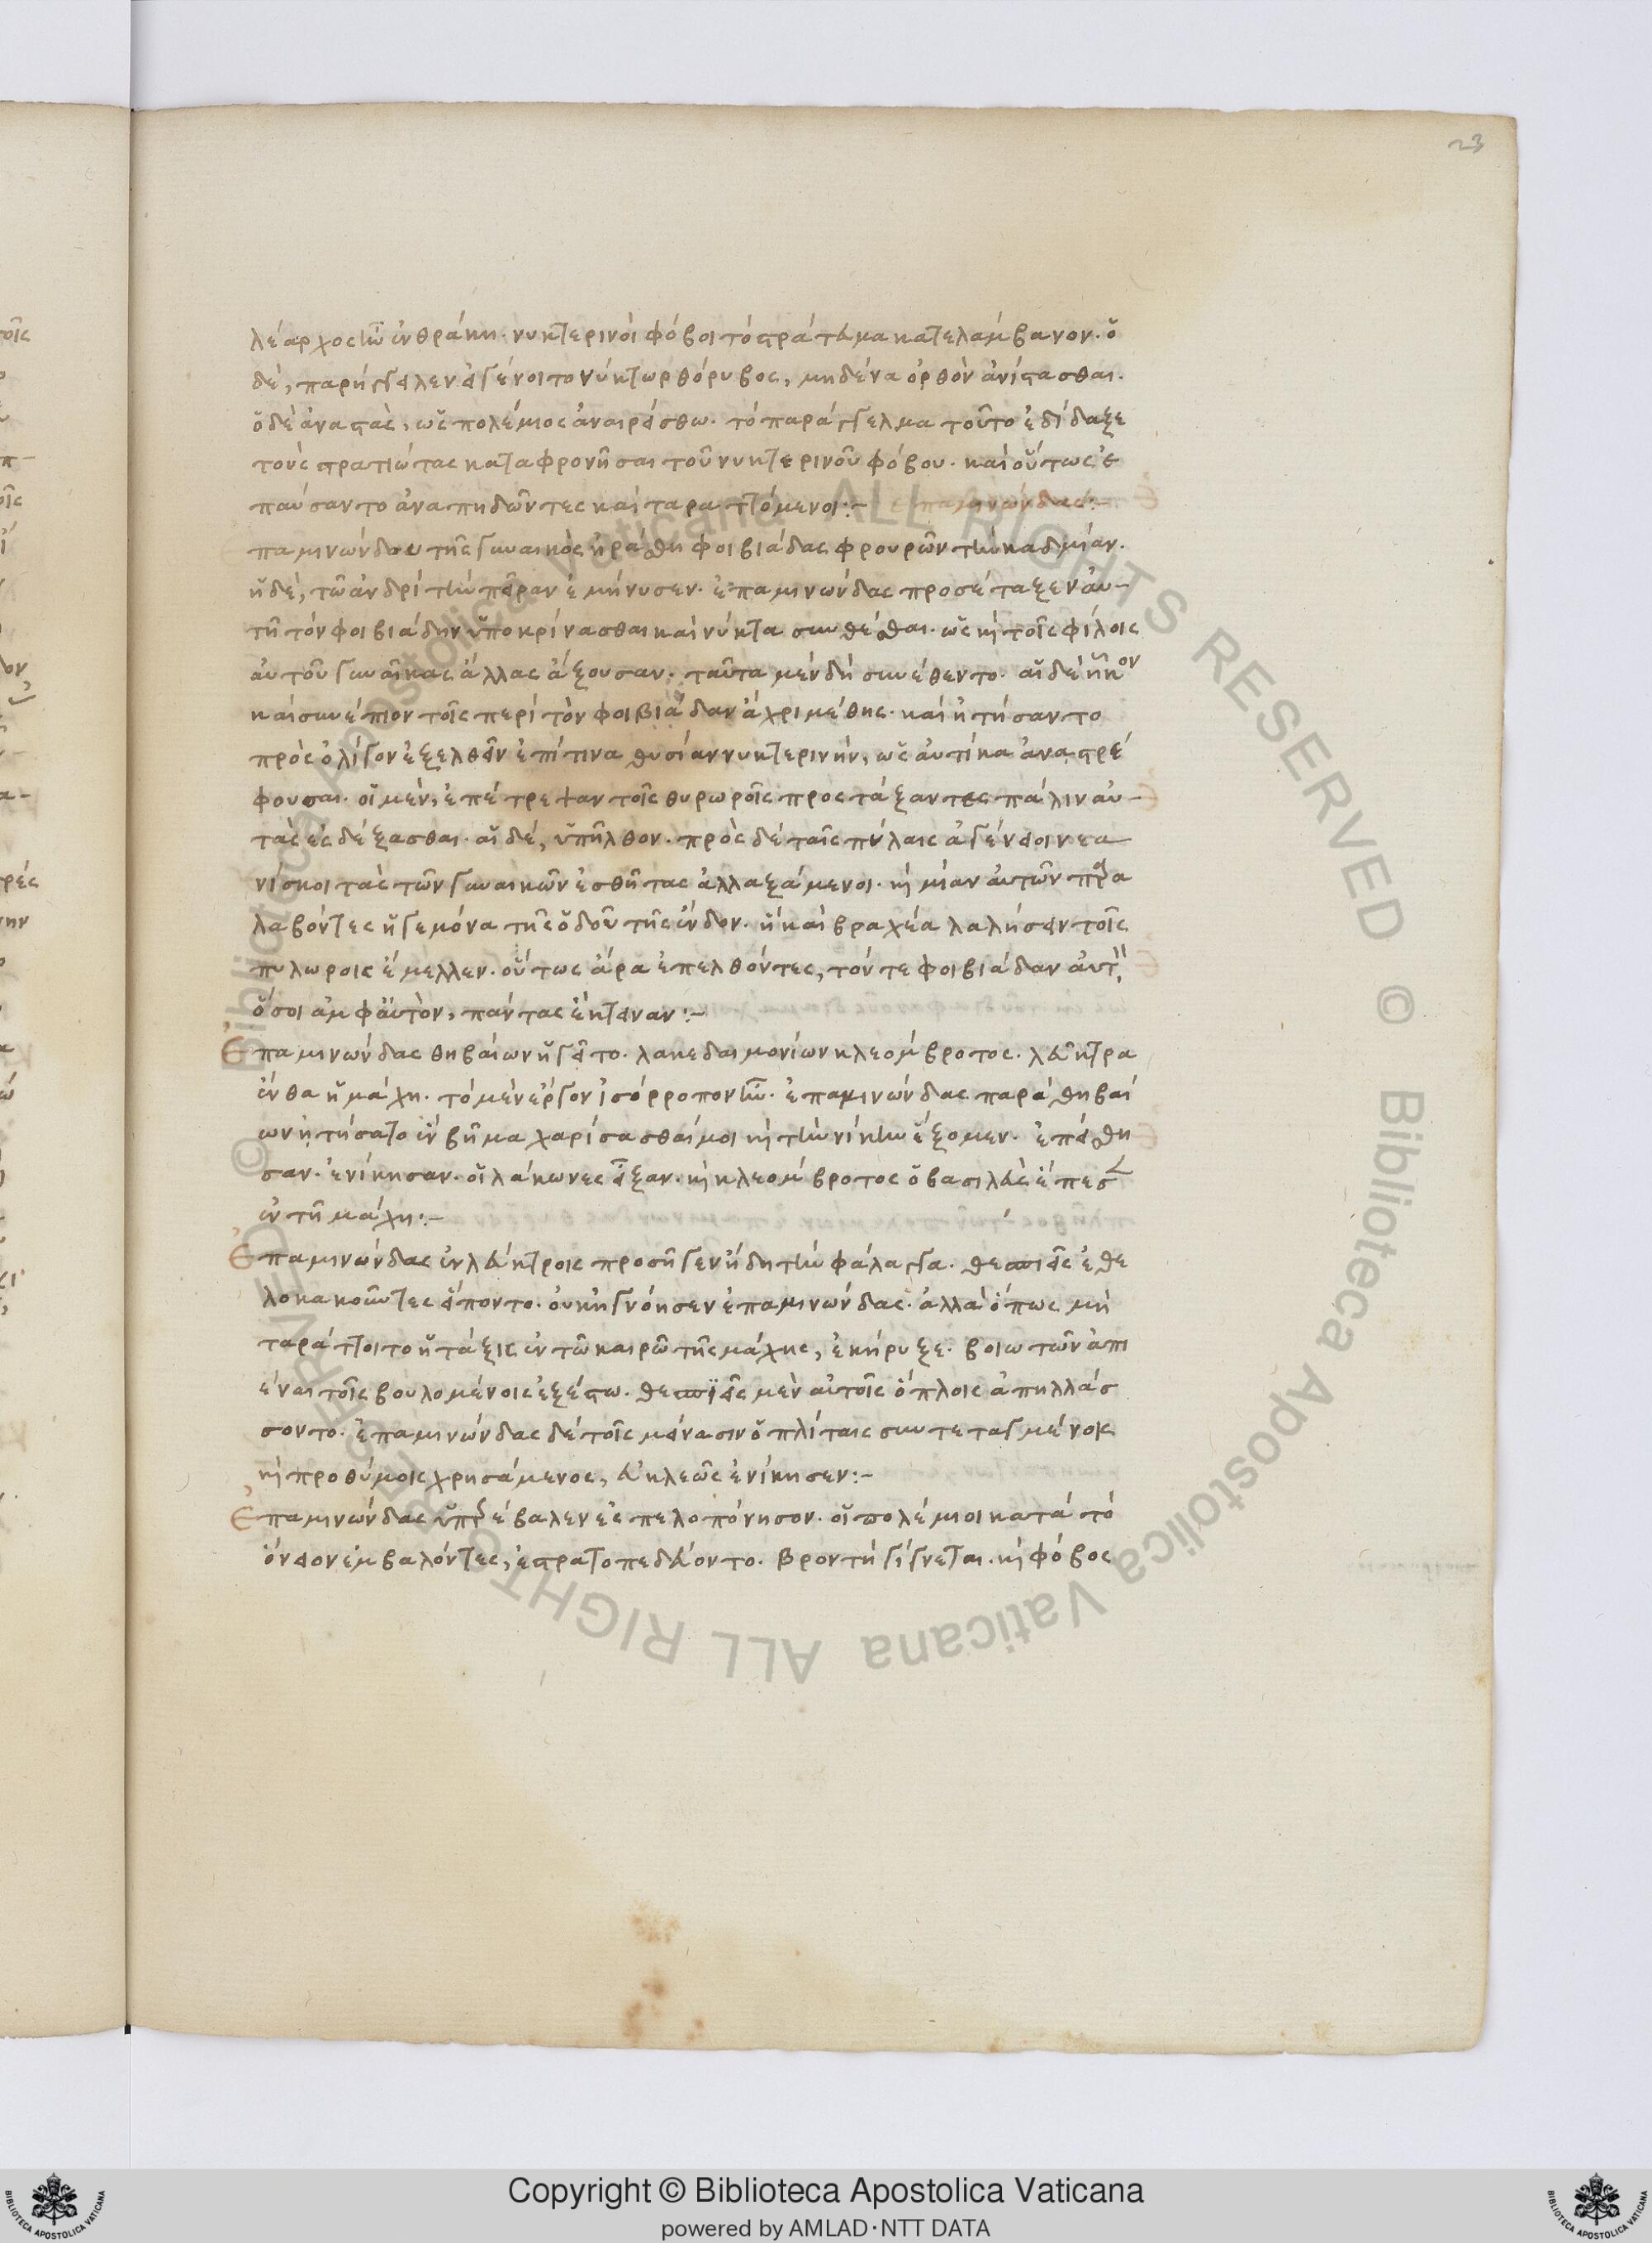 23
λέαρχος ἦν ἐν θράκη· νυκτερινοὶ φόβοι τὸ στράτευμα κατελάμβανον. ὁ
δὲ, παρήγγειλεν εἰ γένοιτο νύκτωρ θόρυβος, μηδένα ὀρθὸν ἀνίστασθαι.
ὁ δὲ ἀναστὰς, ὡς πολέμιος ἀναιρείσθω. τὸ παράγγελμα τοῦτο ἐδίδαξε
τοὺς στρατιώτας καταφρονῆσαι τοῦ νυκτερινοῦ φόβου. καὶ οὕτως ἐ
παύσαντο ἀναπηδῶντες καὶ ταραττόμενοι:- επαμινώνδας:-
παμινώνδου τῆς γυναικὸς ἠράσθη φοιβιάδας φρουρῶν τὴν καδμίαν.
ἡ δὲ, τῶ ἀνδρὶ τὴν πεῖραν ἐμήνυσεν. ἐπαμινώνδας προσέταξεν αὐ-
τῆ τὸν φοιβιάδην ὑποκρίνασθαι καὶ νύκτα συνθέσθαι. ὡς κ τοῖς φίλοις
αὐτοῦ γυναῖκας ἄλλας ἄξουσαν. ταῦτα μὲν δὴ συνέθεντο. αἱ δὲ ἧκον
καὶ συνέπιον τοῖς περὶ τὸν φοιβιάδαν ἄχρι μέθης. καὶ ἠτήσαντο
πρὸς ὀλίγον ἐξελθεῖν ἐπί τινα θυσίαν νυκτερινὴν, ὡς αὐτίκα ἀναστρέ
φουσαι. οἱ μὲν, ἐπέτρεψαν τοῖς θυρωροῖς προστάξαντες πάλιν αὐ-
τὰς εἰσδέξασθαι. αἱ δὲ, ὑπῆλθον. πρὸς δὲ ταῖς πύλαις ἀγένειοι νεα
νίσκοι τὰς τῶν γυναικῶν ἐσθῆτας ἀλλαξάμενοι. κ μίαν αὐτῶν παρα
λαβόντες ἡγεμόνα τῆς ὁδοῦ τῆς ἔνδον. ἣ καὶ βραχέα λαλήσειν τοῖς
πυλωροις ἔμελλεν. οὕτως ἄρα ἐπελθόντες, τόν τε φοιβιάδαν αὐτ
ὅσοι ἀμφ' αὐτὸν, πάντας ἔκτειναν:-
Επαμινώνδας θηβαίων ἡγεῖτο. λακεδαιμονίων κλεόμβροτος. λεῦκτρα
ἔνθα ἡ μάχη. τὸ μὲν ἔργον ἰσόρροπον ἦν. ἐπαμινώνδας παρὰ θηβαί
ων ἠτήσατο ἓν βῆμα χαρίσασθαί μοι κ τὴν νίκην ἕξομεν. ἐπείσθη
σαν. ἐνίκησαν. οἱ λάκωνες εἶξαν. κ κλεόμβροτος ὁ βασιλεὺς ἔπεσ
ἐν τῆ μάχη:-
Επαμινώνδας ἐν λεύκτροις προσῆγεν ἤδη τὴν φάλαγγα. θεσπιεῖς ἐθε
λοκακοῦντες εἵποντο. οὐκ ἠγνόησεν ἐπαμινώνδας. ἀλλὰ ὅπως μὴ
ταράττοιτο ἡ τάξις ἐν τῶ καιρῶ τῆς μάχης, ἐκήρυξε· βοιωτῶν ἀπι
έναι τοῖς βουλομένοις ἐξέστω. θεσπϊεῖς μὲν αὐτοῖς ὅπλοις ἀπηλλάσ
σοντο. ἐπαμινώνδας δὲ τοῖς μείνασιν ὁπλίταις συντεταγμένοις
κ προθύμοις χρησάμενος, εὐκλεῶς ἐνίκησεν:-
Επαμινώνδας ὑπερέβαλεν εἰς πελοπόνησον. οἱ πολέμιοι κατὰ τὸ
ὄνειον ἐμβαλόντες, ἐστρατοπεδεύοντο. βροντὴ γίγνεται. κ φόβος
Copyright © Biblioteca Apostolica Vaticana
powered by AMLAD·NTT DATA